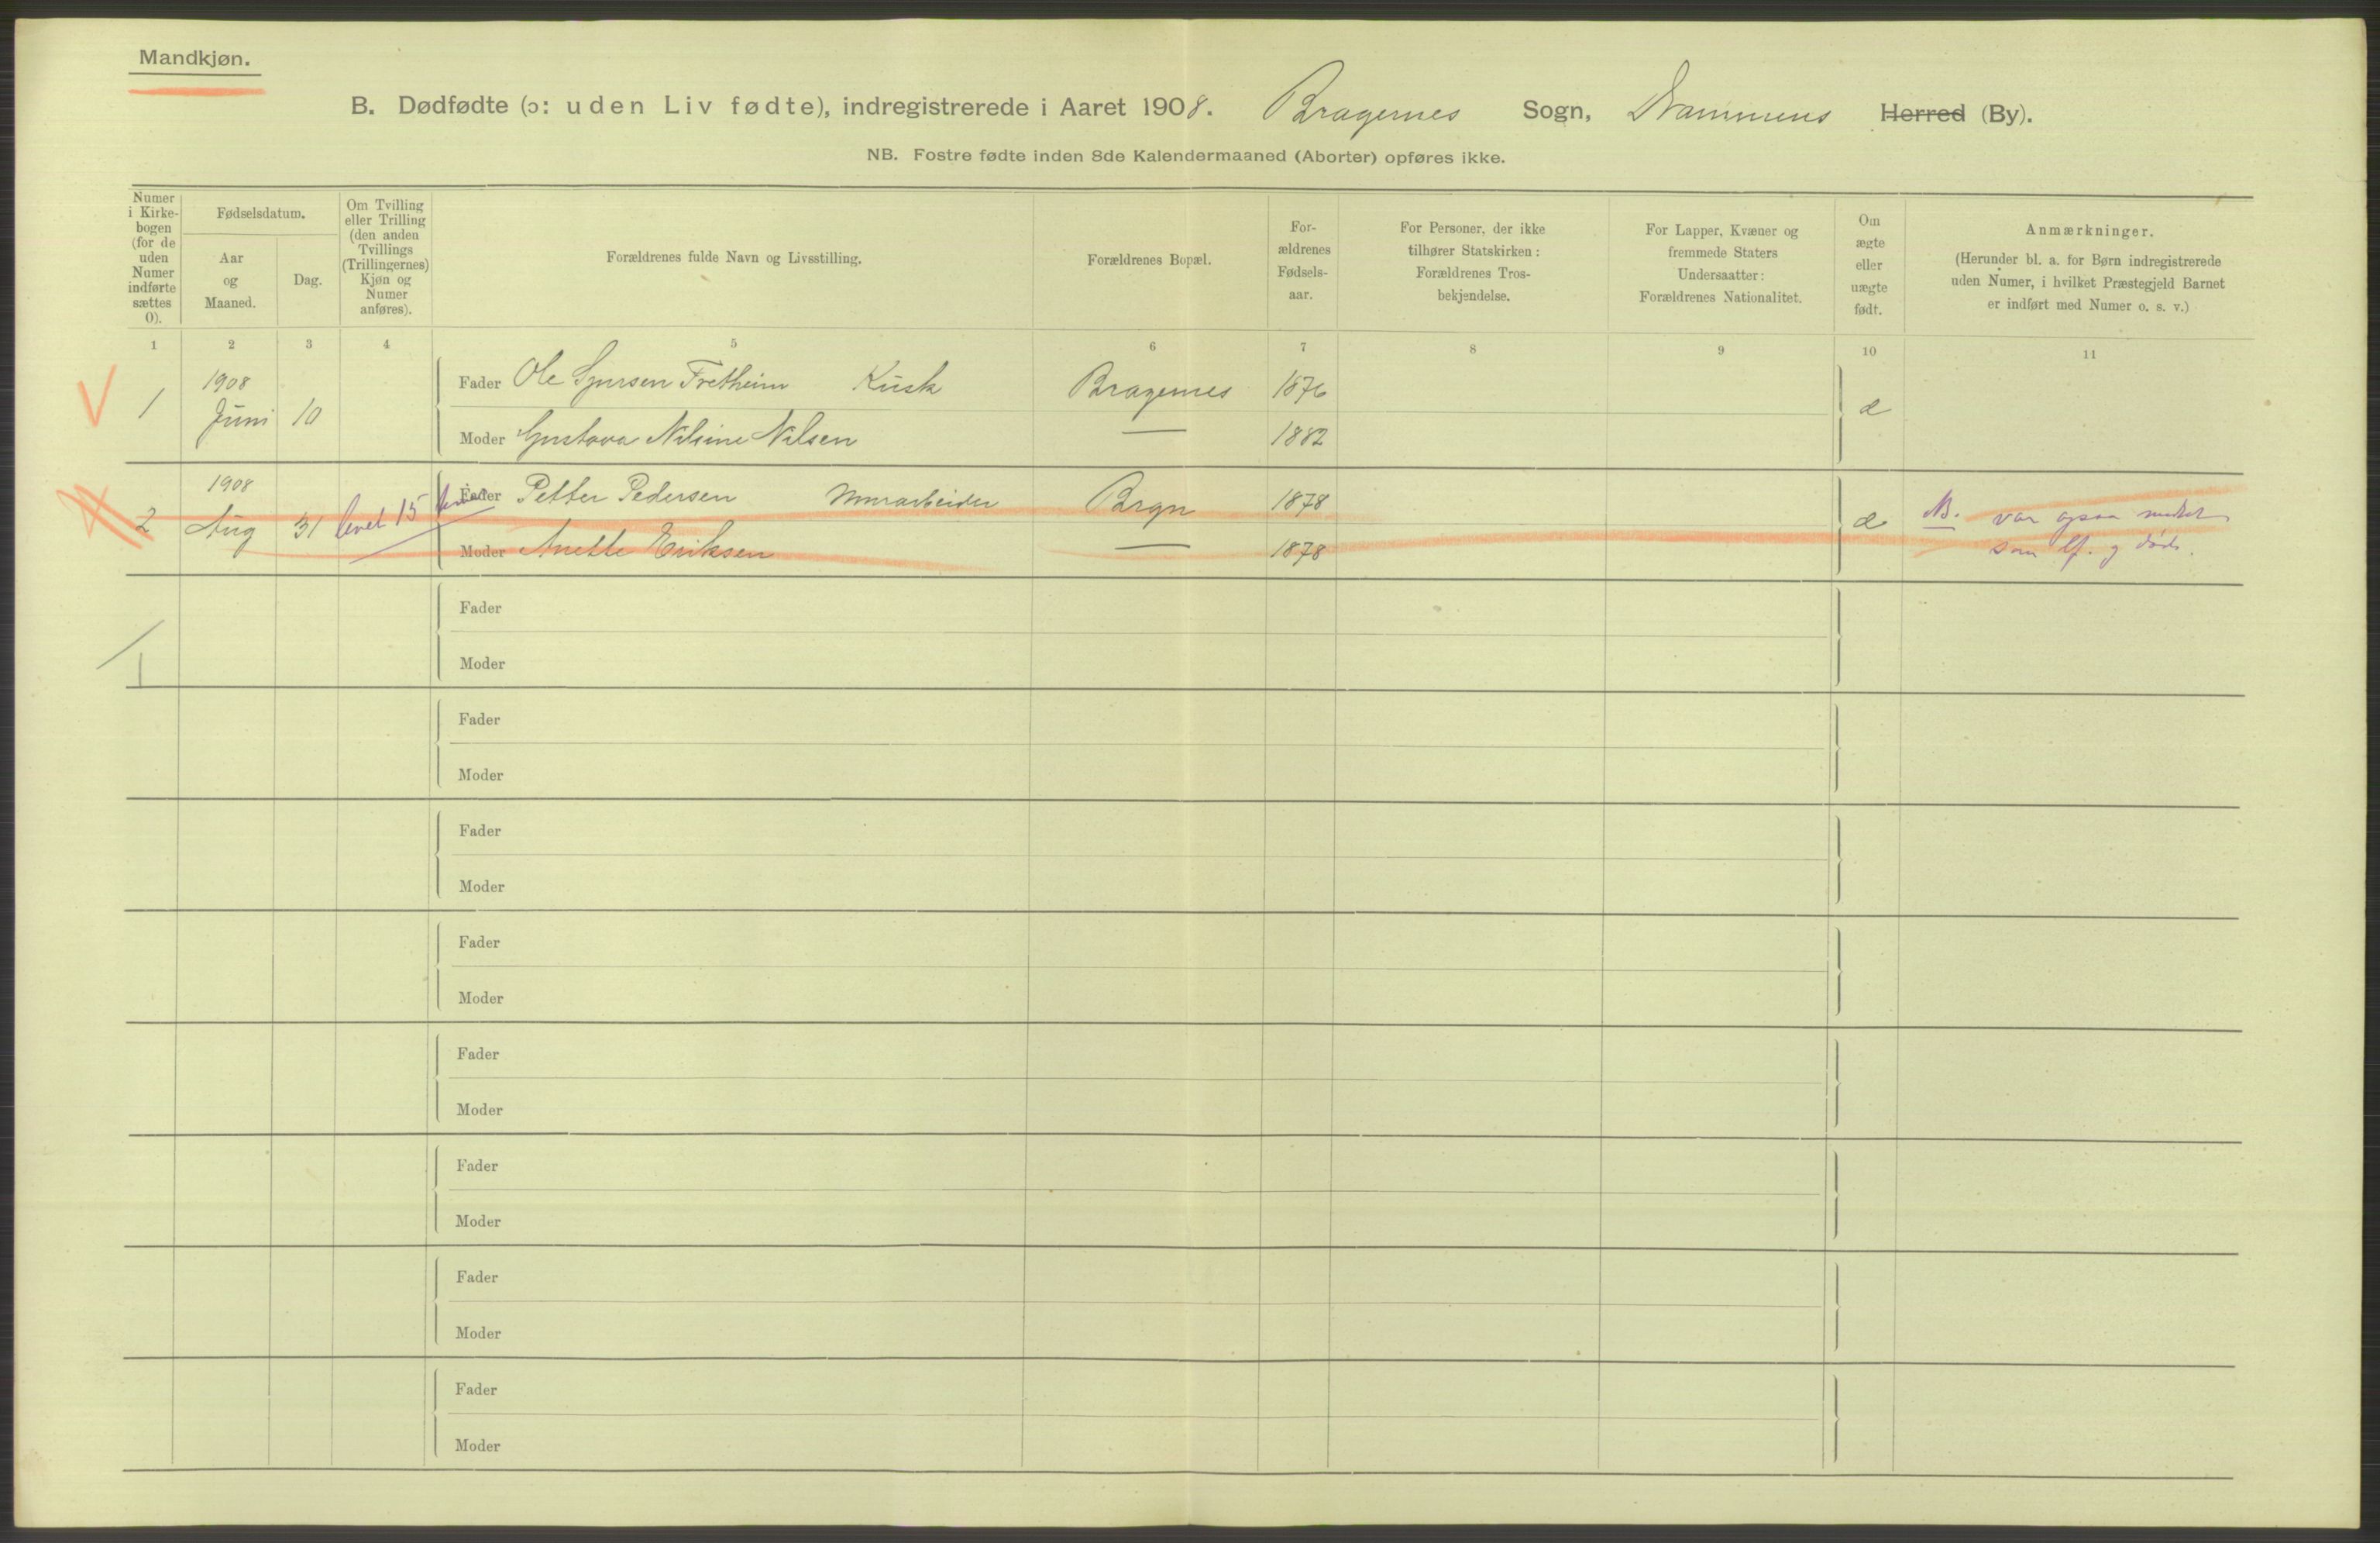 Mandkjøn.
B. Dødfødte (ɔ: uden Liv fødte), indregistrerede i Aaret 1908. Bragernes Sogn, Drammens Herred (By).
NB. Fostre fødte inden 8de Kalendermaaned (Aborter) opføres ikke.
Numer i Kirke-bogen (for de uden Numer indførte sættes 0).
Fødselsdatum.
Aar og Maaned.
Dag.
Om Tvilling eller Trilling (den anden Tvillings (Trillingernes) Kjøn og Numer anføres).
Forældrenes fulde Navn og Livsstilling.
Forældrenes Bopæl.
For-ældrenes Fødsels-aar.
For Personer, der ikke tilhører Statskirken: Forældrenes Tros-bekjendelse.
For Lapper, Kvæner og fremmede Staters Undersaatter: Forældrenes Nationalitet.
Om ægte eller uægte født.
Anmærkninger.
(Herunder bl. a. for Børn indregistrerede uden Numer, i hvilket Præstegjeld Barnet er indført med Numer o. s. v.)
1 2 3 4 5 6 7 8 9 10 11
1 1908 Juni 10 Fader Ole Syversen Fretheim Kusk Bragernes 1876 æ
Moder Gustava Nilsine Nilsen — 1882
2 1908 Aug 31 levet 15 Fader Petter Pedersen Murarbeider Bragn 1878 æ NB. var ogsaa
Moder Anette Eriksen — 1878 som lf. og døde.
Fader
1
Moder
Fader
Moder
Fader
Moder
Fader
Moder
Fader
Moder
Fader
Moder
Fader
Moder
Fader
Moder